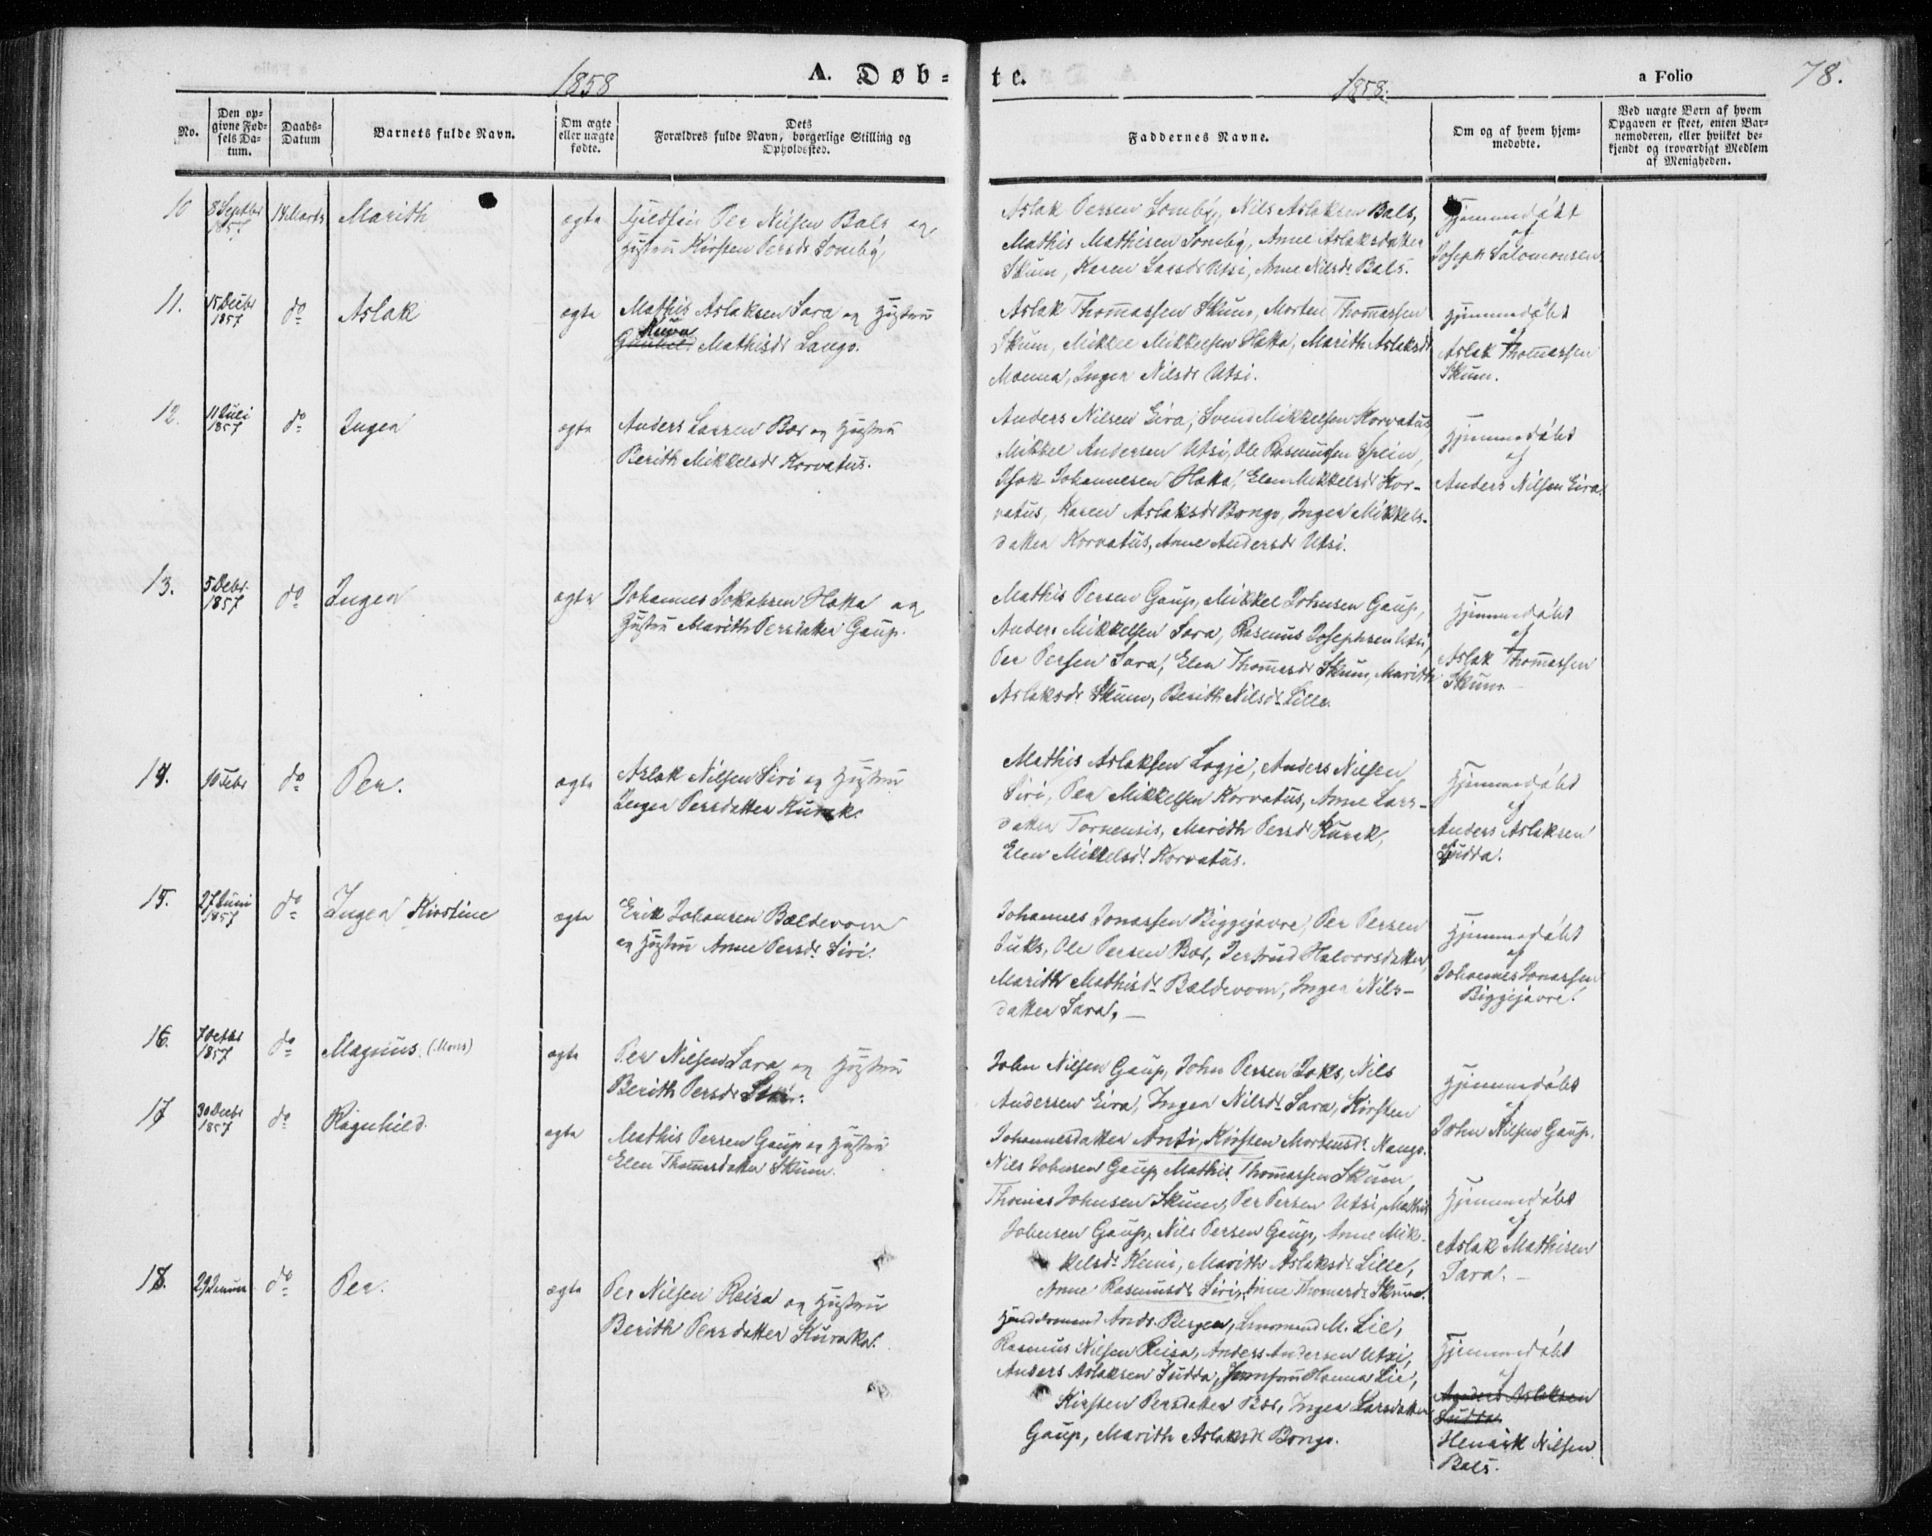 1858 A. Døb-
te. 1858. a Folio 78.
No.
Den op-
givne Fød-
sels Da-
tum.
Daabs-
Datum
Barnets fulde Navn.
Om ægte
eller uægte
fødte.
Dets
Forældres fulde Navn, borgerlige Stilling og
Opholdssted.
Faddernes Navne.
Om og af hvem hjem-
medøbte.
Ved uægte Børn af hvem
Opgaven er skeet, enten Bar-
nemoderen, eller hvilket be-
kjendt og troværdigt Medlem
af Menigheden.
10 8 Septbr
1857
14 Marts Marith ægte
Per Nilsen Bals og
Hustru Kirsten Persdr Somby
Aslak Persen Somby, Nils Aslaksen Bals,
Mathis Mathisen Somby, Anne Aslaksdatter
Skum, Karen Larsdr Utsi, Anne Nilsdr Bals.
Hjemmedøbt
af
Joseph Salomonsen
11. 15 Decbr
1857
do Aslak ægte
Mathis Aslaksen Sara og Hustru
Mathisdr Lango.
Aslak Thomassen Skum, Morten Thomassen
Skum, Mikkel Mikkelsen Hætta, Marith Aslaksdr
Inger Nilsdr Utsi.
Hjemmedøbt
af
Aslak Thomassen
Skum.
12. 11 Juli
1857
do Inger ægte
Anders Larsen Bær og Hustru
Berith Mikkelsdr Korvatus.
Anders Nilsen Eira, Svend Mikkelsen Korvatus,
Mikkel Andersen Utsi, Ole Rasmussen Spein,
Isak Johannesen Hætta, Elen Mikkelsdr Kor-
vatus, Karen Aslaksdr Bongo, Inger Mikkels-
datter Korvatus, Anne Andersdr Utsi.
Hjemmedøbt
af
Anders Nilsen Eira.
13. 5 Debr.
1857
do Inger ægte
Johannes Hætta og
Hustru Marith Persdatter Gaup.
Mathis Persen Gaup, Mikkel Johnsen Gaup,
Anders Mikkelsen Sara, Rasmus Josephsen Utsi,
Per Persen Sara, Elen Thomasdr Skum, Marith
Aslaksdr Skum, Berith Nilsdr Lille.
Hjemmedøbt
af
Aslak Thomassen
Skum.
14. do Per. ægte
Aslak Nilsen Siri og Hustru
Inger Persdatter Kurak.
Mathis Aslaksen Logje, Anders Nilsen
Siri, Per Mikkelsen Korvatus, Anne Lars-
datter Tornensis, Marith Persdr Kurak,
Elen Mikkelsdr Korvatus.
Hjemmedøbt
af
Anders Aslaksen
Sudda.
15. 27 Juni
1857
do Inger Kirstine ægte
Erik Johansen Bældevom
og Hustru Anne Persdr Siri.
Johannes Jonassen Biggejavre, Per Persen
Juks, Ole Persen Bær, Jertrud Halvorsdatter,
Marith Mathisdr Bældevom, Inger Nils-
datter Sara, —
Hjemmedøbt
af
Johannes Jonassen
Biggejavre.
16. 7 Octbr
1857
do Magnus (Mons) ægte
Per Nilsen Sara og Hustru
Berith Persdr
John Nilsen Gaup, John Persen Juks, Nils
Andersen Eira, Inger Nilsdr Sara, Kirsten
Johannesdatter Anti, Kirsten Mortensdr Mango.
Hjemmedøbt
af
John Nilsen Gaup.
17 30 Decbr
1857
do Ragnhild. ægte
Mathis Persen Gaup og Hustru
Elen Thomasdatter Skum.
Nils Johnsen Gaup, Mathis Thomassen Skum,
Thomas Johnsen Skum, Per Persen Utsi, Mathis
Johnsen Gaup, Nils Persen Gaup, Anne Mik-
kelsdr Kemi, Marith Aslaksdr Lille,
Anne Rasmusdr Siri, Anne Thomasdr Skum.
Hjemmedøbt
af
Aslak Mathisen
Sara. —
18. 29 Januar do Per. ægte
Per Nilsen Reisa og Hustru
Berith Persdatter Kurak.
Handelsmand Andr. Bergen, Lensmand M. Lie,
Rasmus Nilsen Reisa, Anders Andersen Utsi,
Anders Aslaksen Sudda, Jomfru Hanna Lie,
Kirsten Persdatter Bær, Inger Larsdatter
Gaup, Marith Aslaksdr Bongo.
Hjemmedøbt
af
Anders Aslaksen
Sudda
Henrik Nilsen
Bals.